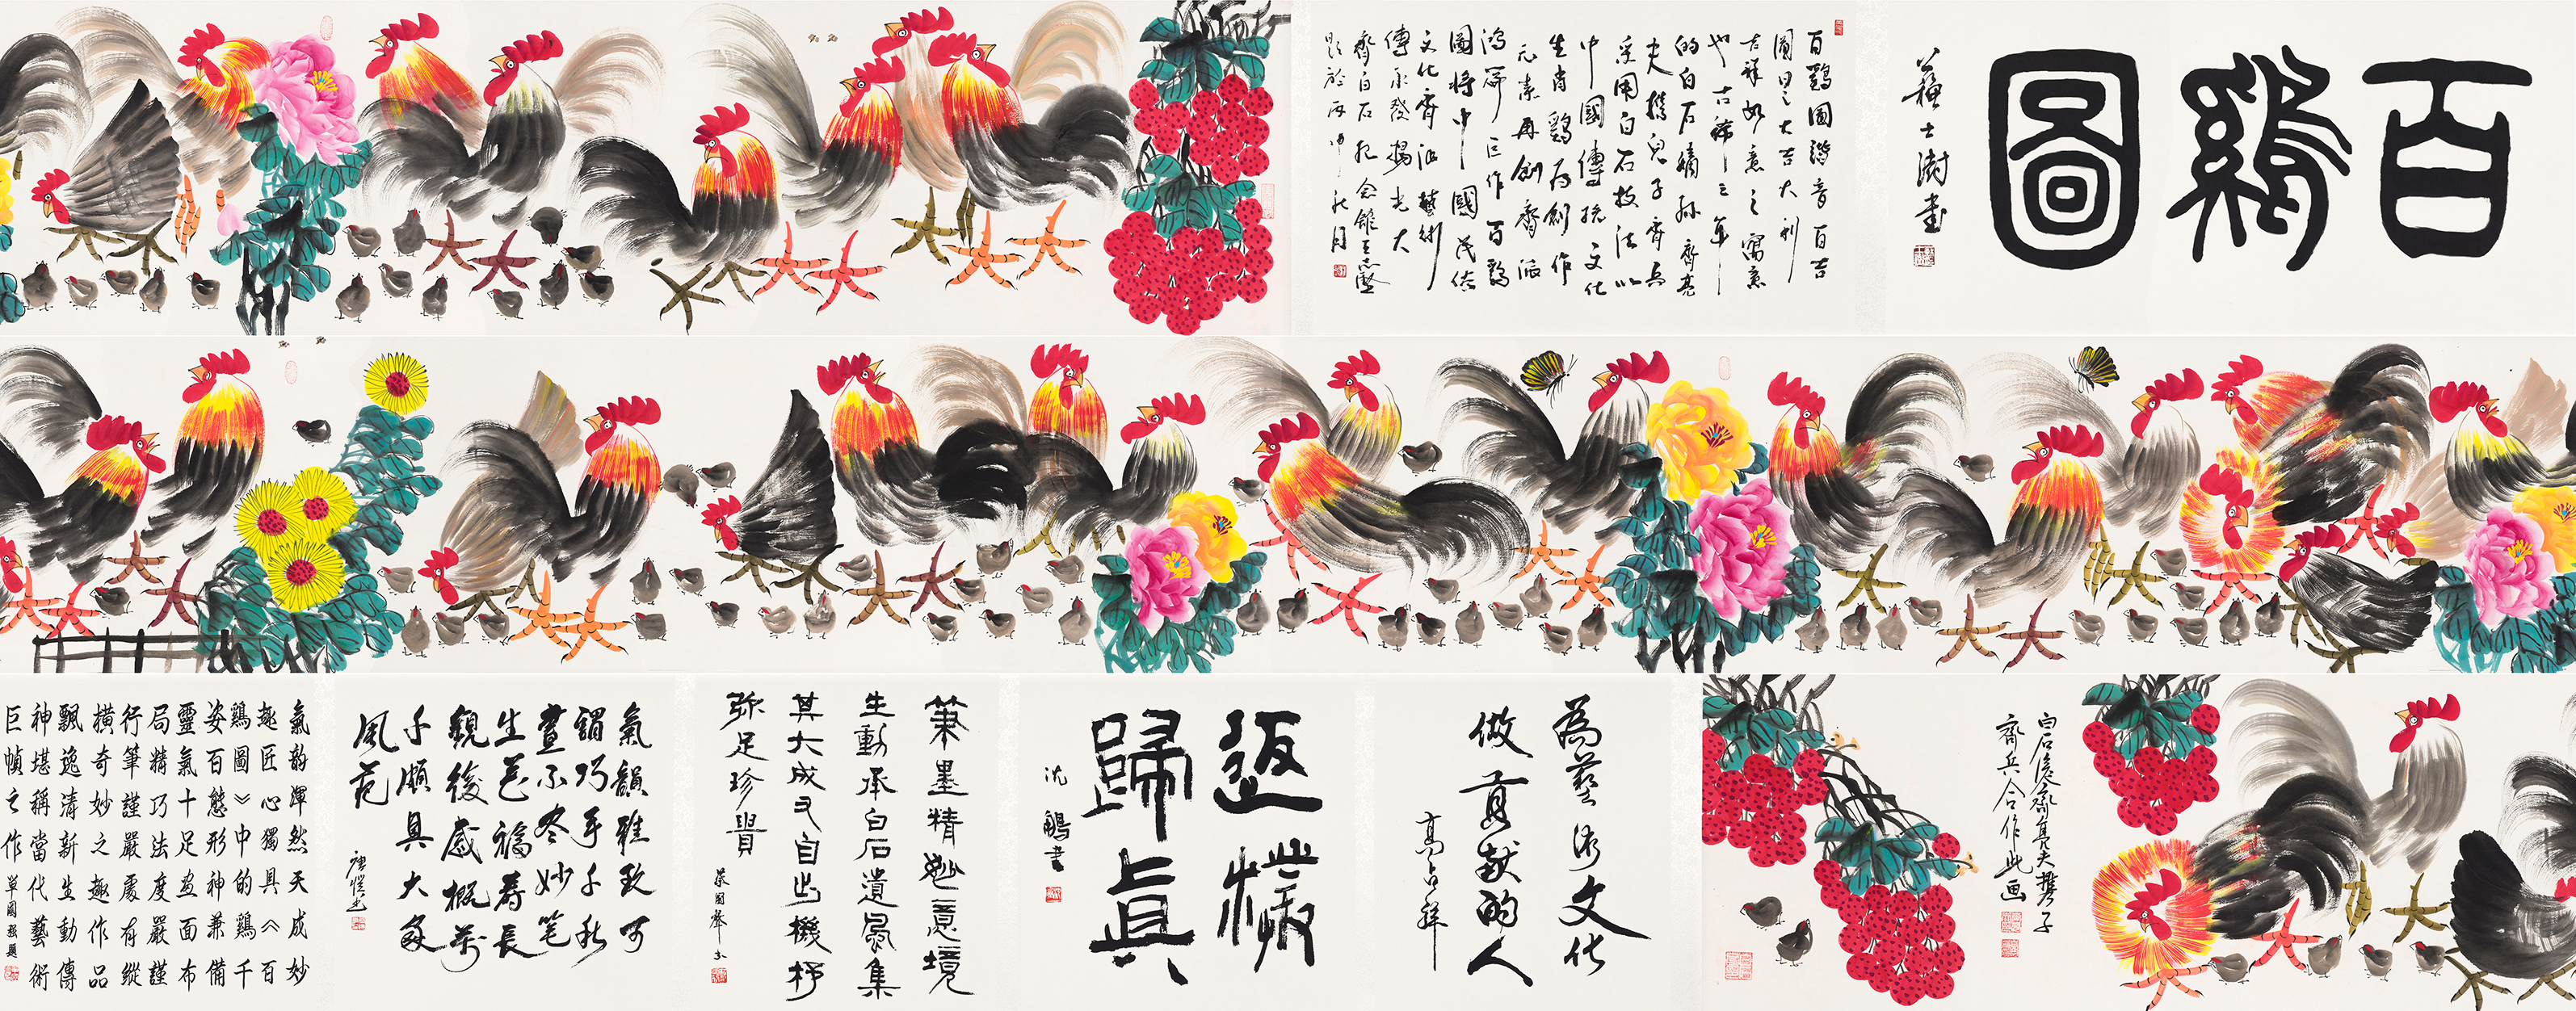 百鷄圖
蘇士澍書
百鷄圖諧音百吉
圖曰之大吉大利
吉祥如意之寓意
也古稀之年
的白石嫡孫齊亮
夫携兒子齊兵
采用白石技法以
中國傳統文化
生肖鷄為創作
元素再創齊派
鴻篇巨作百鷄
圖將中國民俗
文化齊派藝術
傳承發揚光大
齊白石紀念館王志堅
題於丙申秋月
白石後裔亮夫攜子
齊兵合作此画
為藝術文化
做貢獻的人
高占祥
返樸
歸真
沈鵬書
筆墨精妙意境
生動承白石遺風集
其大成又自出機杼
弥足珍貴
氣韻雅致可
謂巧手千秋
畫不盡妙笔
生花福壽長
觀後感概万
千頗具大家
風范
唐愷書
氣韵渾然天成妙
趣匠心獨具《百
鷄圖》中的鷄千
姿百態形神兼備
靈氣十足画面布
局精巧法度嚴謹
行筆謹嚴處有縱
横奇妙之趣作品
飄逸清新生動傳
神堪稱當代藝術
巨幀之作
單國强題